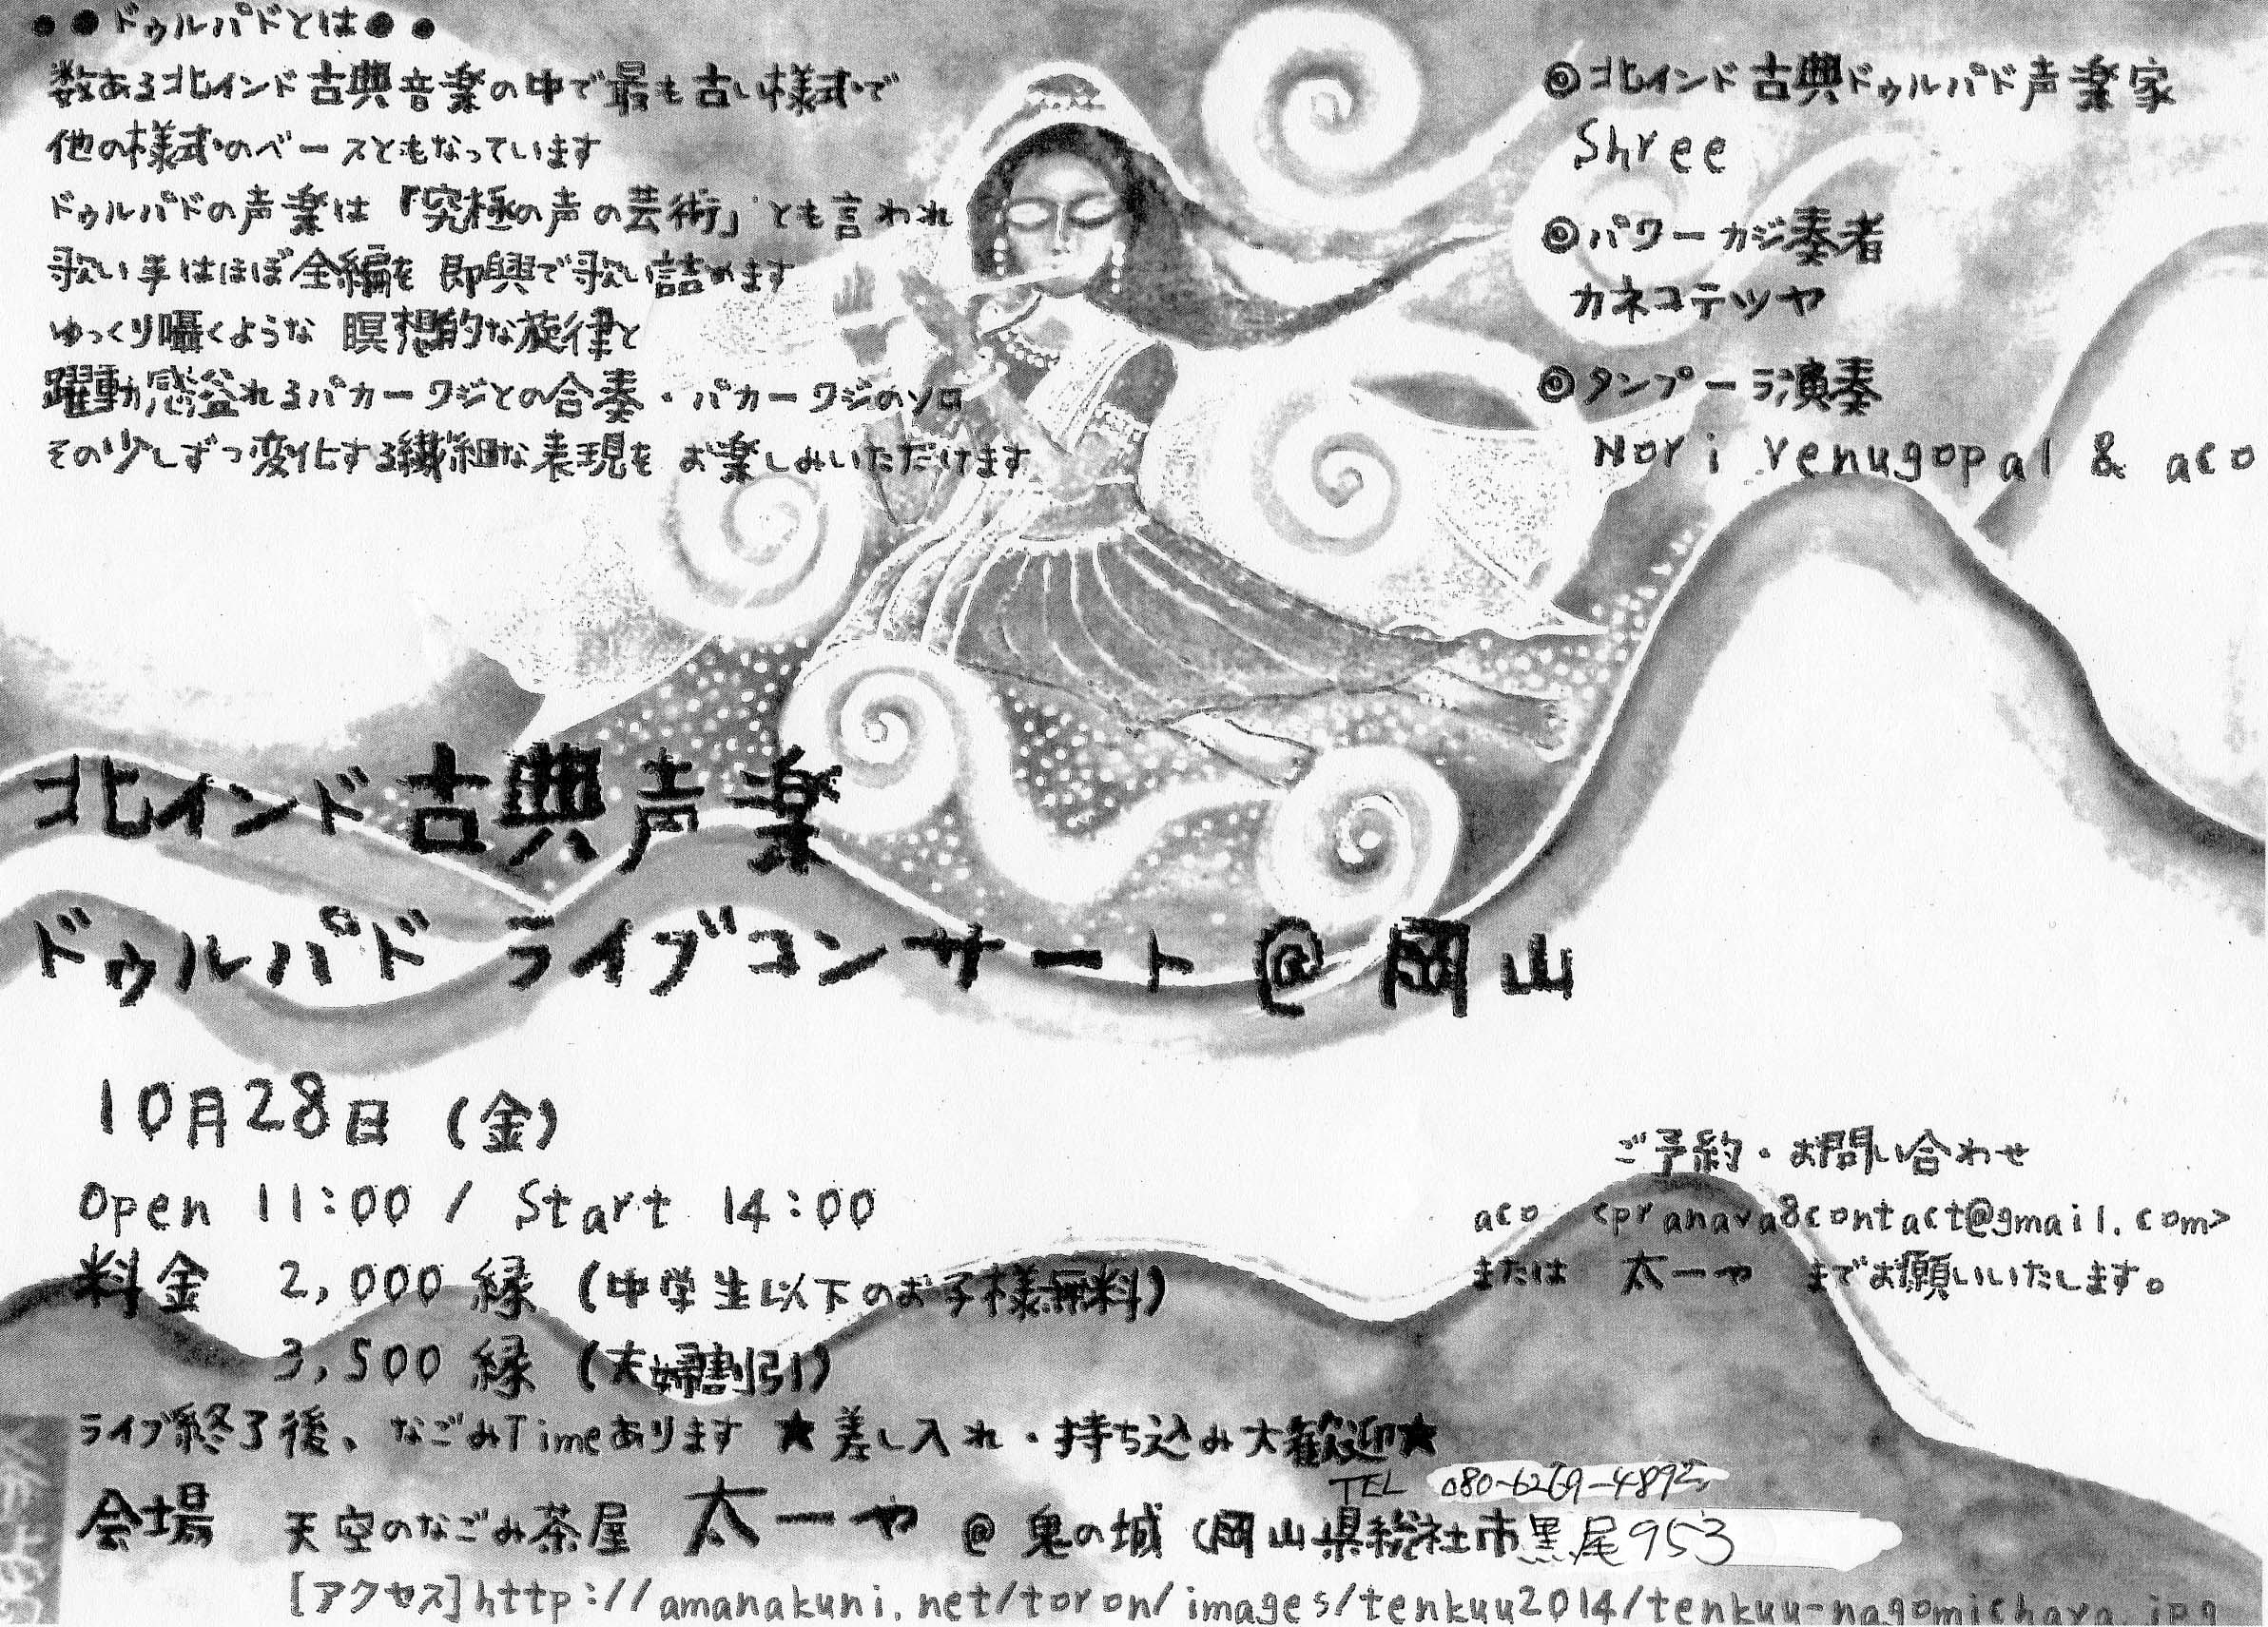 ●●ドゥルパドとは●●
数ある北インド古典音楽の中で最も古い様式で
他の様式のベースともなっています
ドゥルパドの声楽は「究極の声の芸術」とも言われ
歌い手はほぼ全編を即興で歌い詰めます
ゆっくり囁くような 瞑想的な旋律と
躍動感溢れるパカーワジとの合奏・パカーワジのソロ
その少しずつ変化する繊細な表現を お楽しみいただけます
◎北インド古典ドゥルパド声楽家
Shree
◎パワーカジ奏者
カネコテツヤ
◎タンプーラ演奏
Nori Venugopal & aco
北インド古典声楽
ドゥルパド ライブコンサート@岡山
10月28日 (金)
Open 11:00 / Start 14:00
料金 2,000縁 (中学生以下のお子様無料)
3,500縁 (夫婦割引)
ライブ終了後、なごみTimeあります ★差し入れ・持ち込み大歓迎★
ご予約・お問い合わせ
aco <pranava8contact@gmail.com>
または 太一や までお願いいたします。
TEL 080-6269-4892
会場 天空のなごみ茶屋 太一や @ 鬼の城 (岡山県総社市黒尾953
[アクセス]http://amanakuni.net/toron/images/tenkuu2014/tenkuu-nagomichaya.jpg